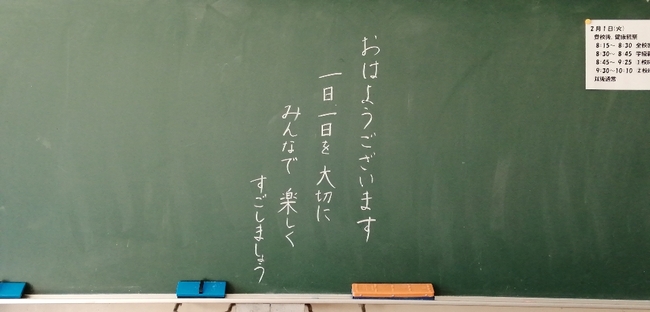 おはようございます
一日一日を大切に
みんなで楽しく
すごしましょう
2月1日(火)
登校後、健康観察
8:15～ 8:30 全校
8:30～ 8:45 学級
8:45～ 9:25 1校
9:30～10:10 2校
以後通常